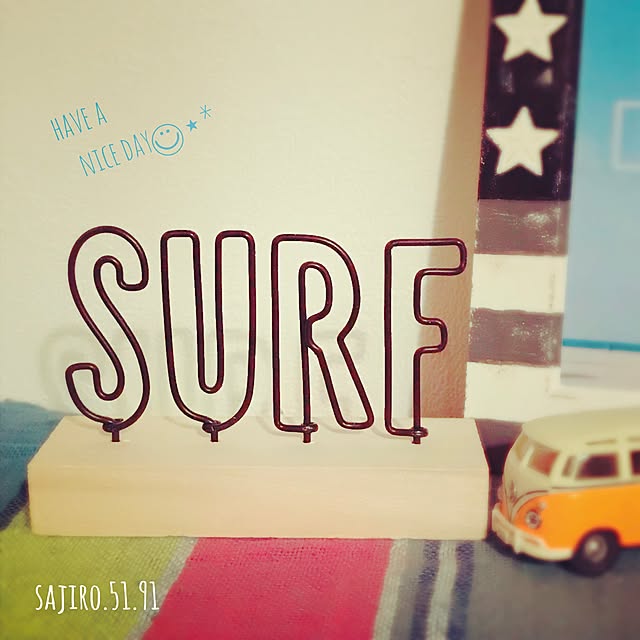 HAVE A
NICE DAY
SURF
SAJIRO.51.91